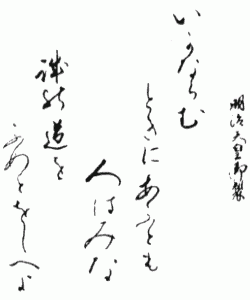 明治天皇御製
いかならむ
ときにあふとも
人はみな
誠の道を
ふめとをしへよ